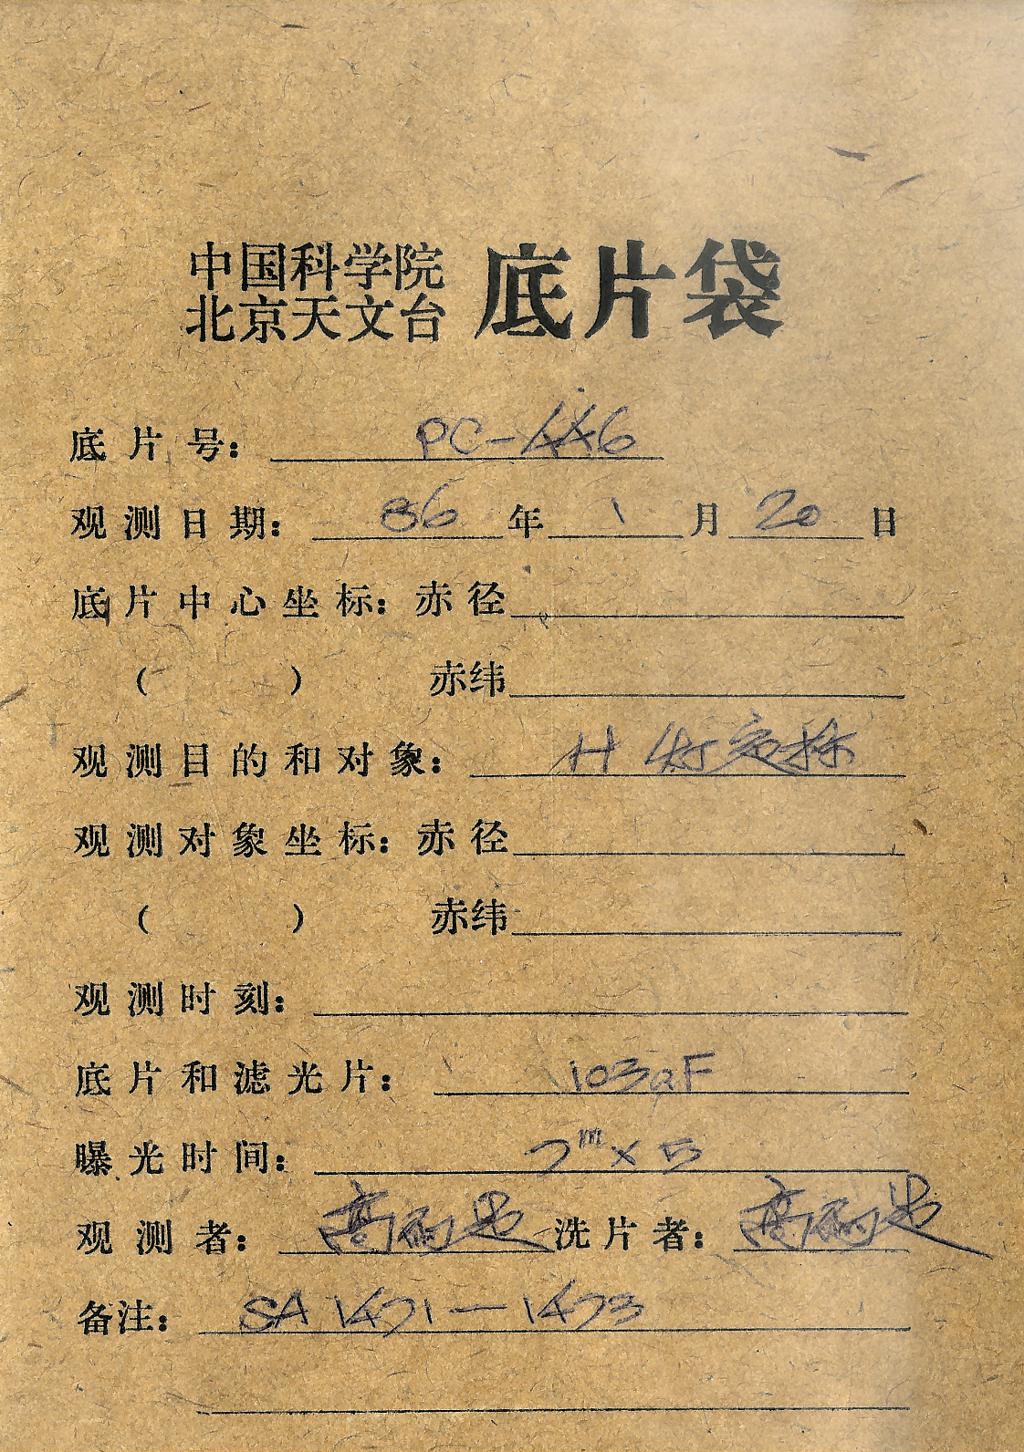 中国科学院
北京天文台 底片袋
底片号: PC-446
观测日期: 86 年 1 月 20 日
底片中心坐标: 赤径
( ) 赤纬
观测目的和对象: H 灯定标
观测对象坐标: 赤径
( ) 赤纬
观测时刻:
底片和滤光片: 103aF
曝光时间: 7ᵐ x 5
观测者: 高 洗片者: 高
备注: SA 1471—1473